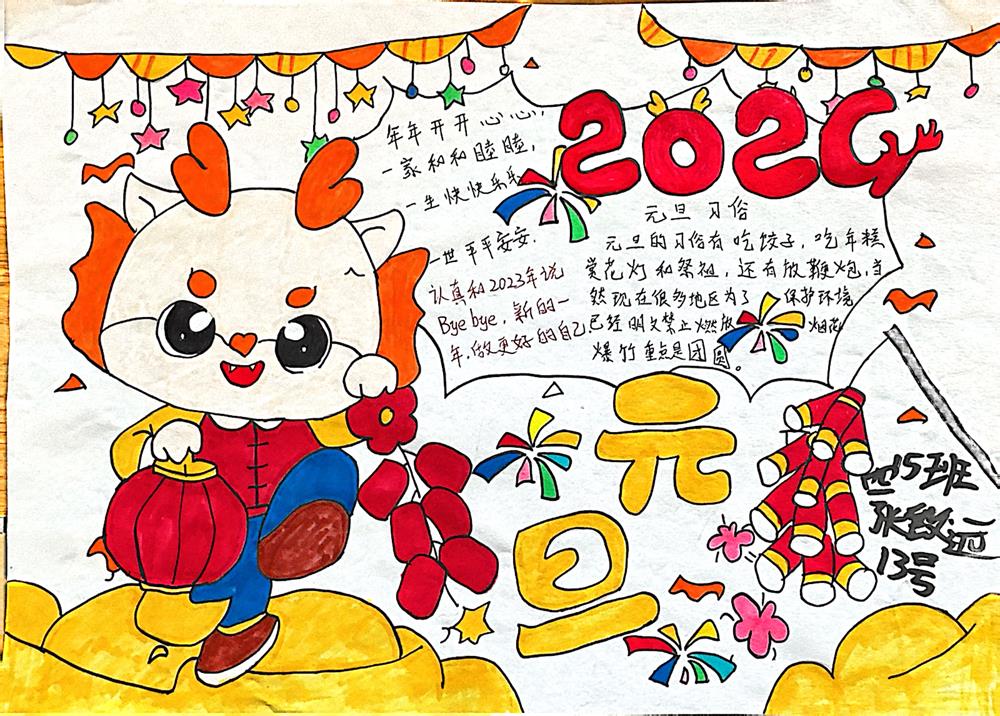 2024
年年开开心心，
一家和和睦睦，
一生快快乐乐
一世平平安安.
认真和2023年说
Bye bye，新的一
年.做更好的自己
元旦 习俗
元旦的习俗有吃饺子，吃年糕
赏花灯和祭祖，还有放鞭炮，当
然现在很多地区为了 保护环境
已经明文禁止燃放 烟花
爆竹重点是团圆。
元
旦
四15班
张致远
13号